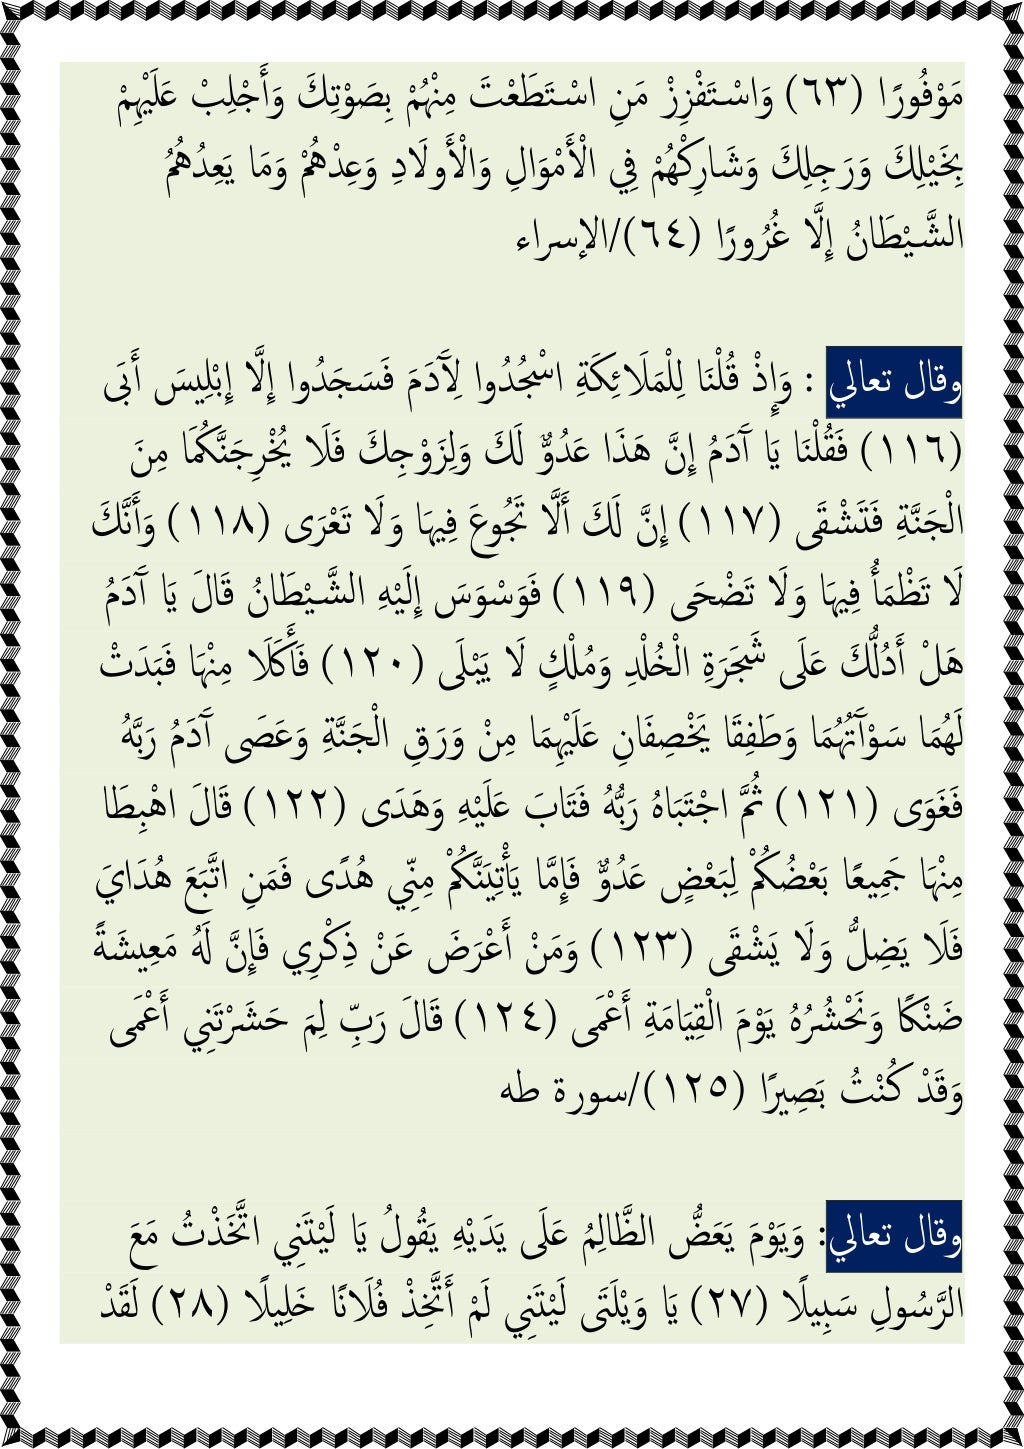 مَوْفُورًا (٦٣) وَاسْتَفْزِزْ مَنِ اسْتَطَعْتَ مِنْهُمْ بِصَوْتِكَ وَأَجْلِبْ عَلَيْهِمْ
بِخَيْلِكَ وَرَجِلِكَ وَشَارِكْهُمْ فِي الْأَمْوَالِ وَالْأَولَادِ وَعِدْهُمْ وَمَا يَعِدُهُمُ
الشَّيْطَانُ إِلَّا غُرُورًا (٦٤)/الإسراء
وقال تعالي : وَإِذْ قُلْنَا لِلْمَلَائِكَةِ اسْجُدُوا لِآَدَمَ فَسَجَدُوا إِلَّا إِبْلِيسَ أَبَى
(١١٦) فَقُلْنَا يَا آَدَمُ إِنَّ هَذَا عَدُوٌّ لَكَ وَلِزَوْجِكَ فَلَا يُخْرِجَنَّكُمَا مِنَ
الْجَنَّةِ فَتَشْقَى (١١٧) إِنَّ لَكَ أَلَّا تَجُوعَ فِيهَا وَلَا تَعْرَى (١١٨) وَأَنَّكَ
لَا تَظْمَأُ فِيهَا وَلَا تَضْحَى (١١٩) فَوَسْوَسَ إِلَيْهِ الشَّيْطَانُ قَالَ يَا آَدَمُ
هَلْ أَدُلُّكَ عَلَى شَجَرَةِ الْخُلْدِ وَمُلْكٍ لَا يَبْلَى (١٢٠) فَأَكَلَا مِنْهَا فَبَدَتْ
لَهُمَا سَوْآَتُهُمَا وَطَفِقَا يَخْصِفَانِ عَلَيْهِمَا مِنْ وَرَقِ الْجَنَّةِ وَعَصَى آَدَمُ رَبَّهُ
فَغَوَى (١٢١) ثُمَّ اجْتَبَاهُ رَبُّهُ فَتَابَ عَلَيْهِ وَهَدَى (١٢٢) قَالَ اهْبِطَا
مِنْهَا جَمِيعًا بَعْضُكُمْ لِبَعْضٍ عَدُوٌّ فَإِمَّا يَأْتِيَنَّكُمْ مِنِّي هُدًى فَمَنِ اتَّبَعَ هُدَايَ
فَلَا يَضِلُّ وَلَا يَشْقَى (١٢٣) وَمَنْ أَعْرَضَ عَنْ ذِكْرِي فَإِنَّ لَهُ مَعِيشَةً
ضَنْكًا وَنَحْشُرُهُ يَوْمَ الْقِيَامَةِ أَعْمَى (١٢٤) قَالَ رَبِّ لِمَ حَشَرْتَنِي أَعْمَى
وَقَدْ كُنْتُ بَصِيرًا (١٢٥)/سورة طه
وقال تعالي: وَيَوْمَ يَعَضُّ الظَّالِمُ عَلَى يَدَيْهِ يَقُولُ يَا لَيْتَنِي اتَّخَذْتُ مَعَ
الرَّسُولِ سَبِيلًا (٢٧) يَا وَيْلَتَى لَيْتَنِي لَمْ أَتَّخِذْ فُلَانًا خَلِيلًا (٢٨) لَقَدْ